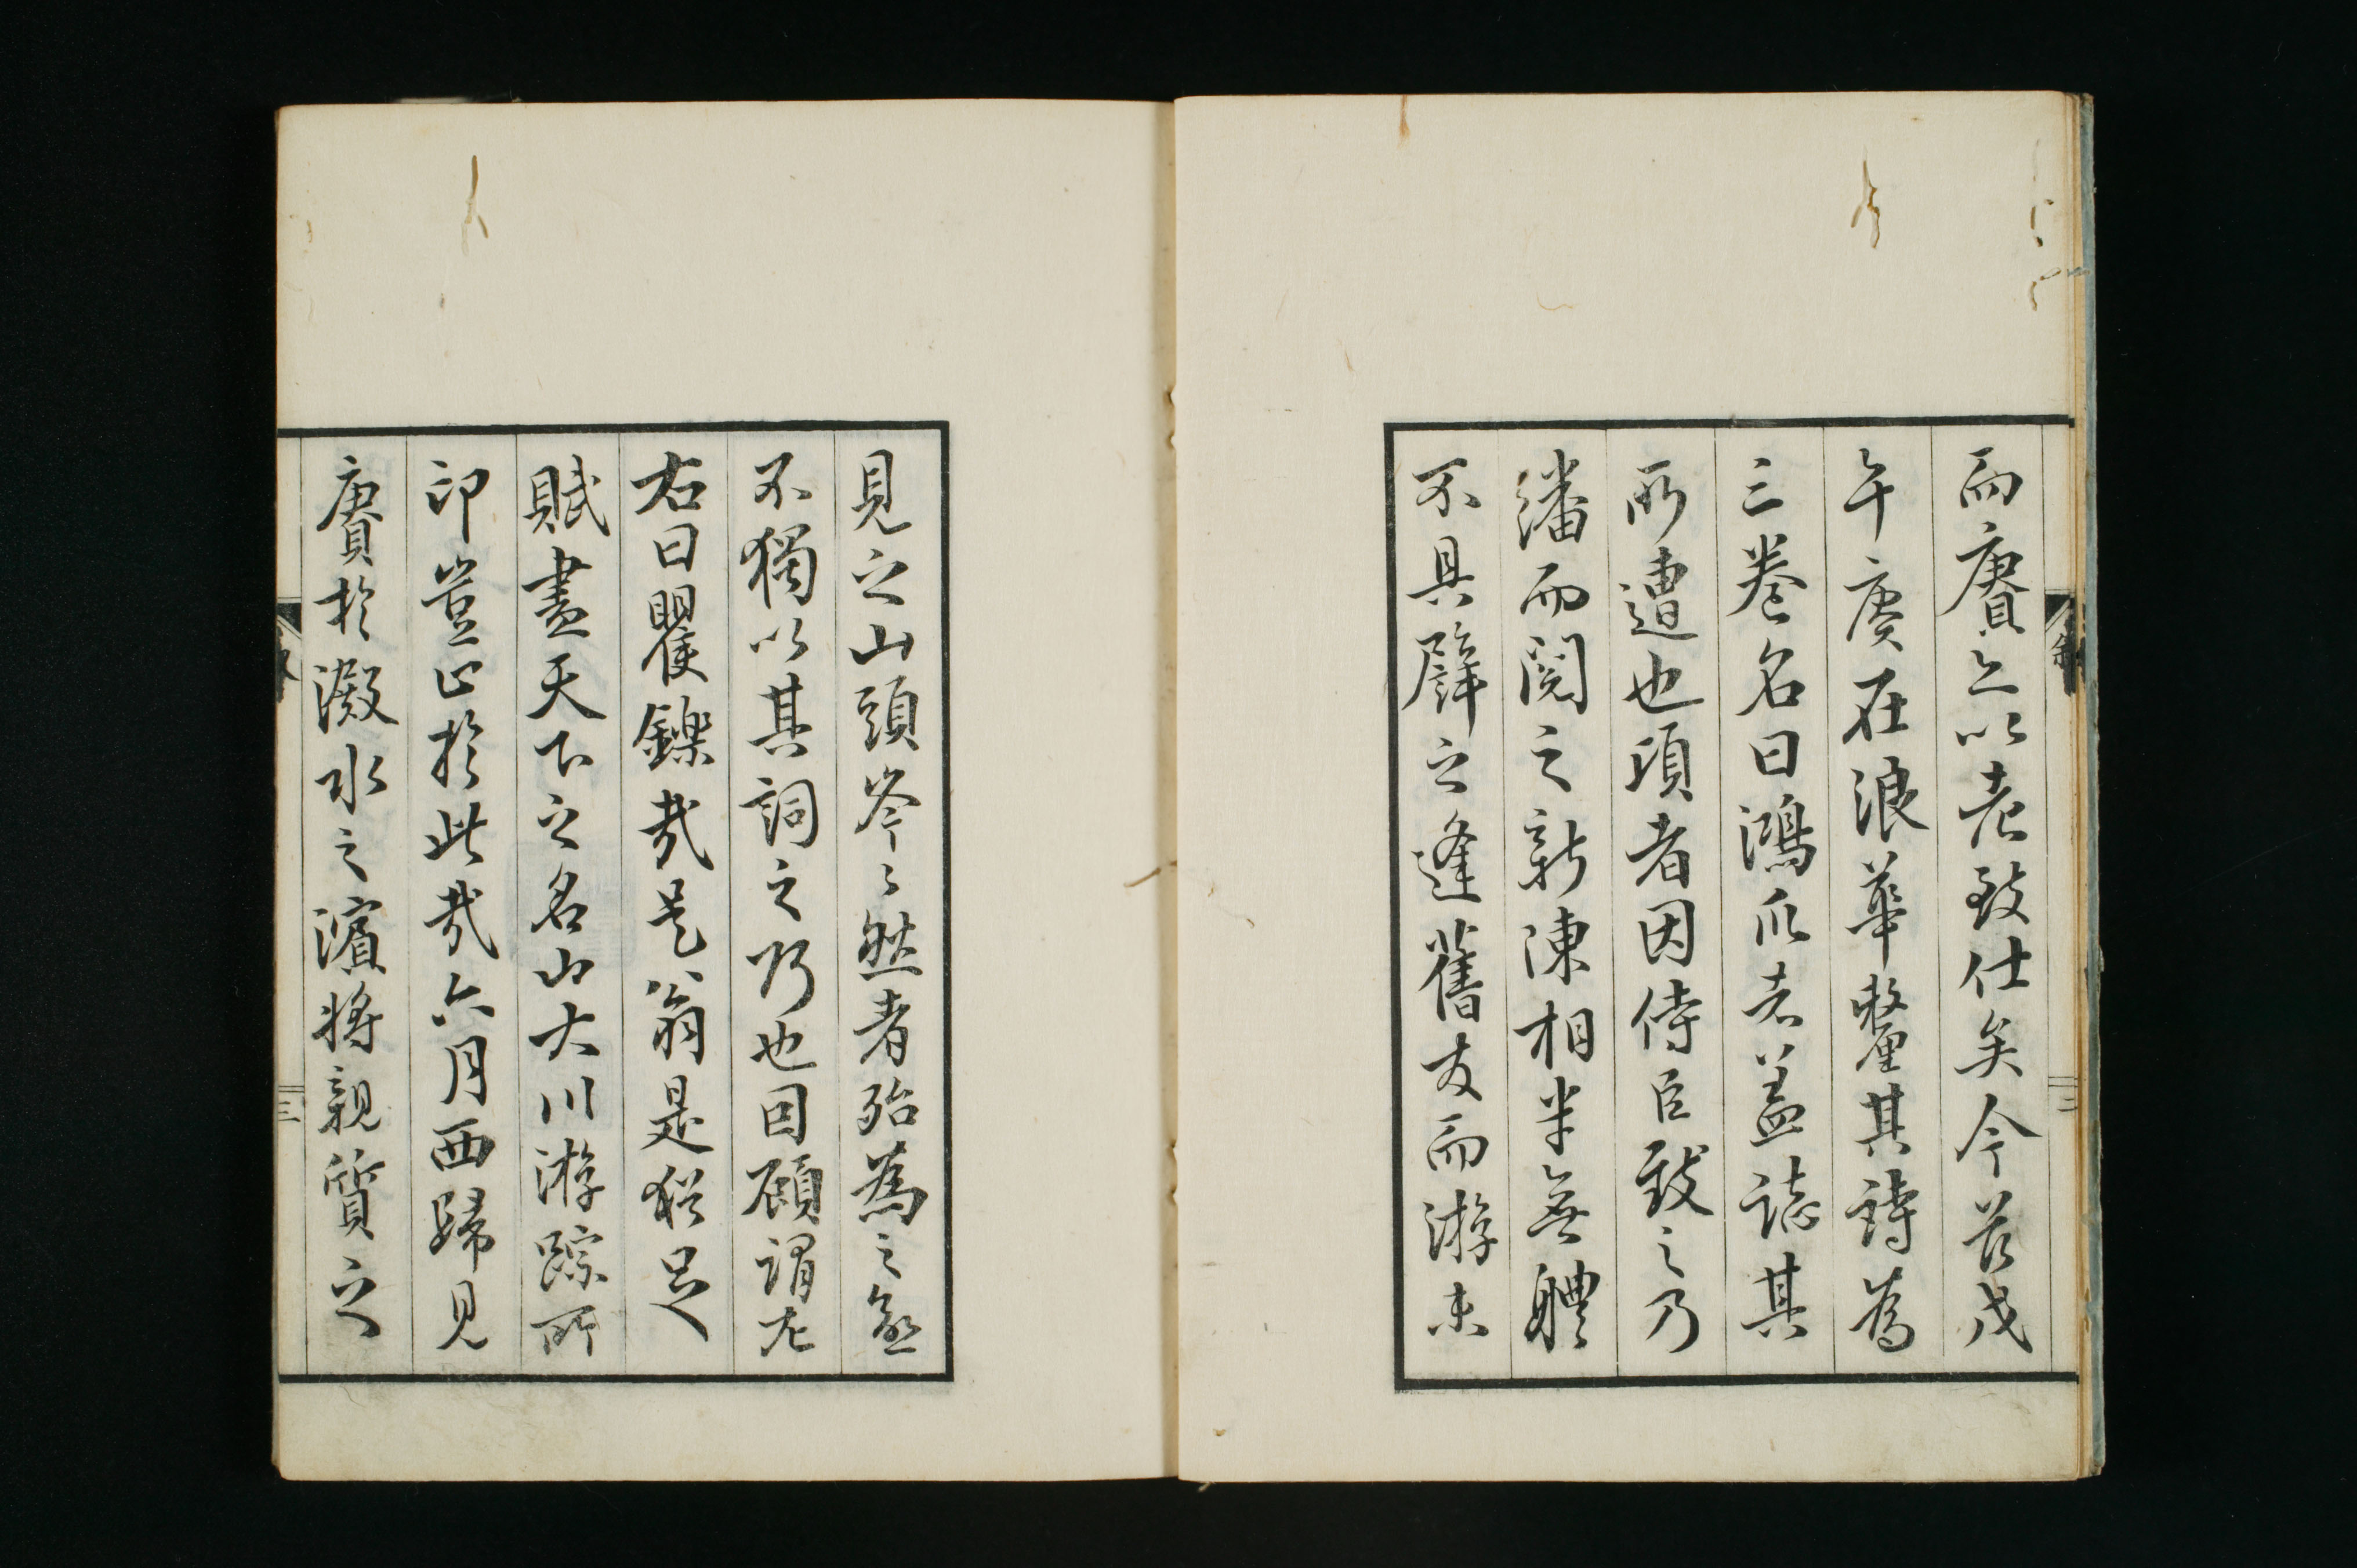 而賡已以老致仕矣今茲戊
午賡在浪華釐其詩為
三卷名曰鴻爪志蓋誌其
所遭也頃者因侍臣致之乃
繙而閱之新陳相半無體
不具辟之逢舊友而游未
見之山頭岑々然者殆為之
不獨以其詞之巧也因顧謂左
右曰矍鑠哉是翁是猶足
賦盡天下之名山大川游踪所
印豈止於此哉六月西歸見
賡於澱水之濱將親質之
三